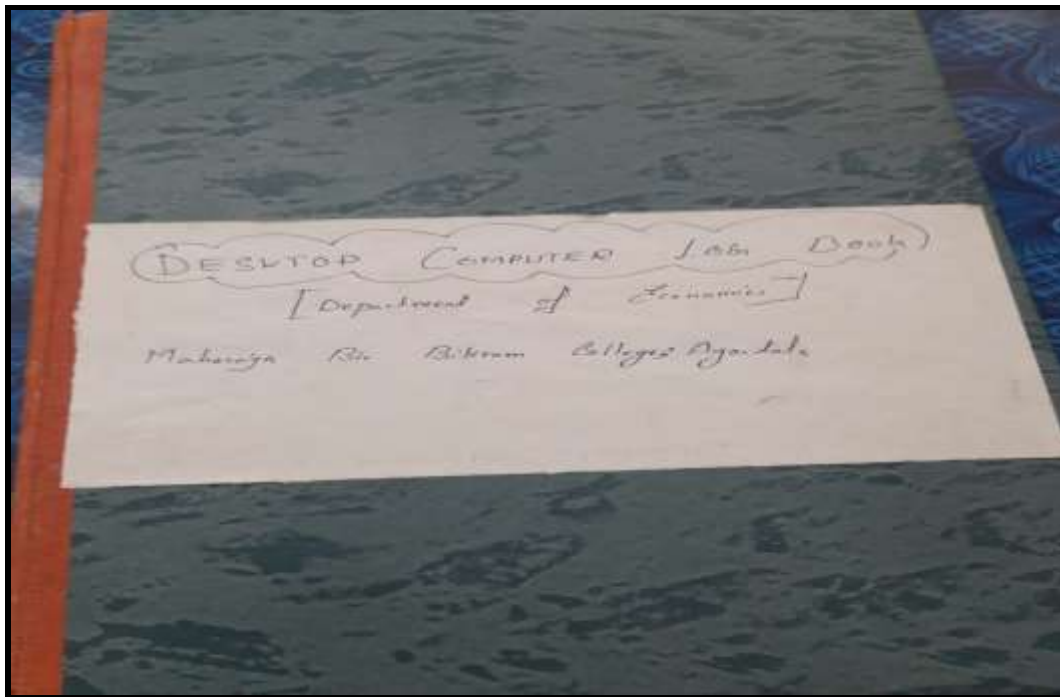 DESKTOP COMPUTER LOG BOOK
[Department of Economics]
Maharaja Bir Bikram College, Agartala